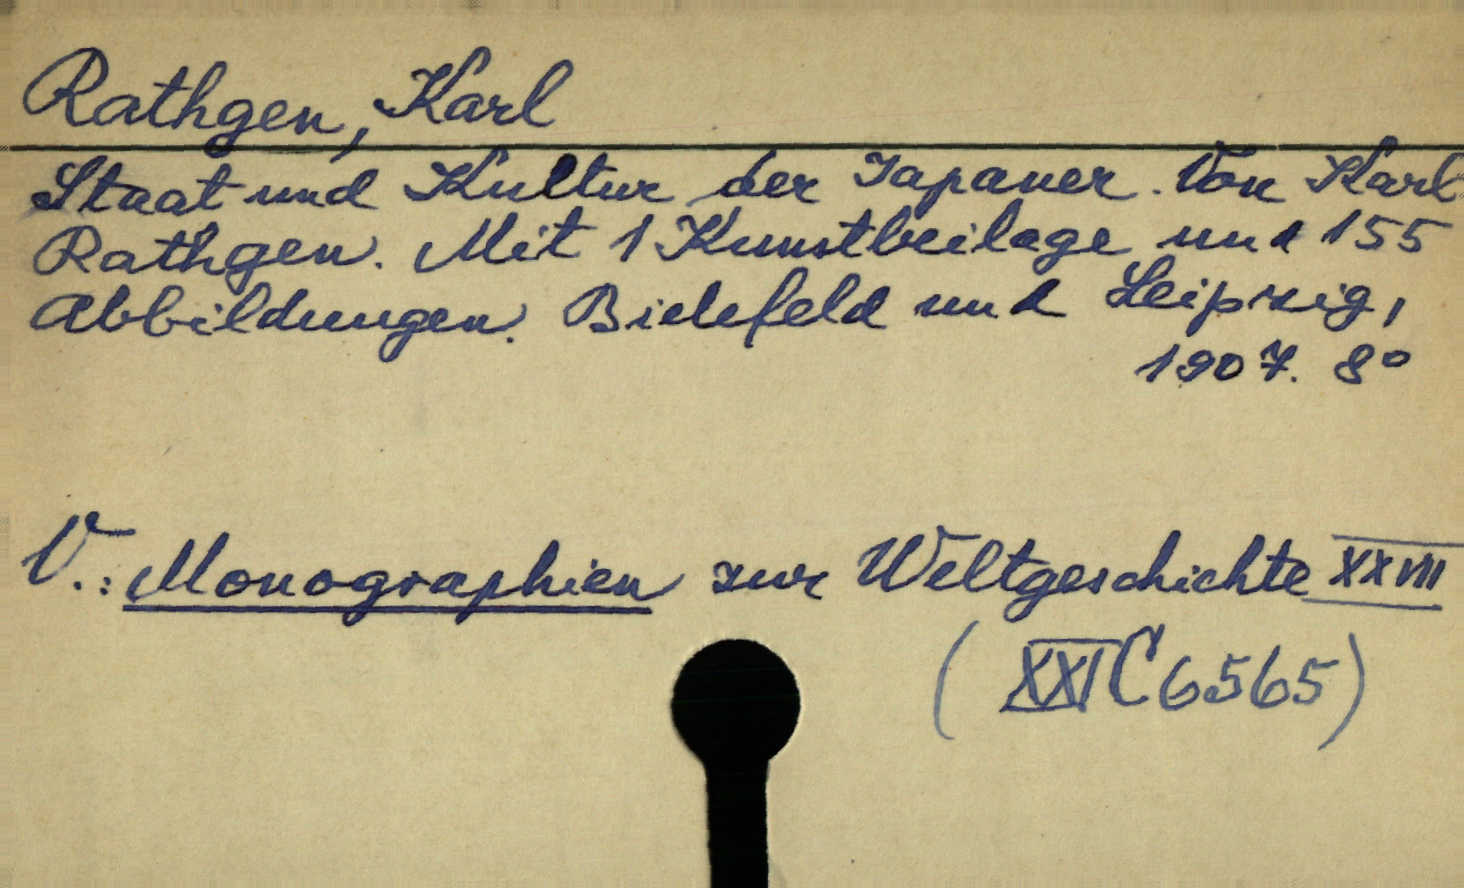 Rathgen, Karl
Staat und Kultur der Japaner. Von Karl
Rathgen. Mit 1 Kunstbeilage und 155
Abbildungen. Bielefeld und Leipzig,
1907. 8°
V.: Monographien zur Weltgeschichte XXVIII
(XXI C 6565)